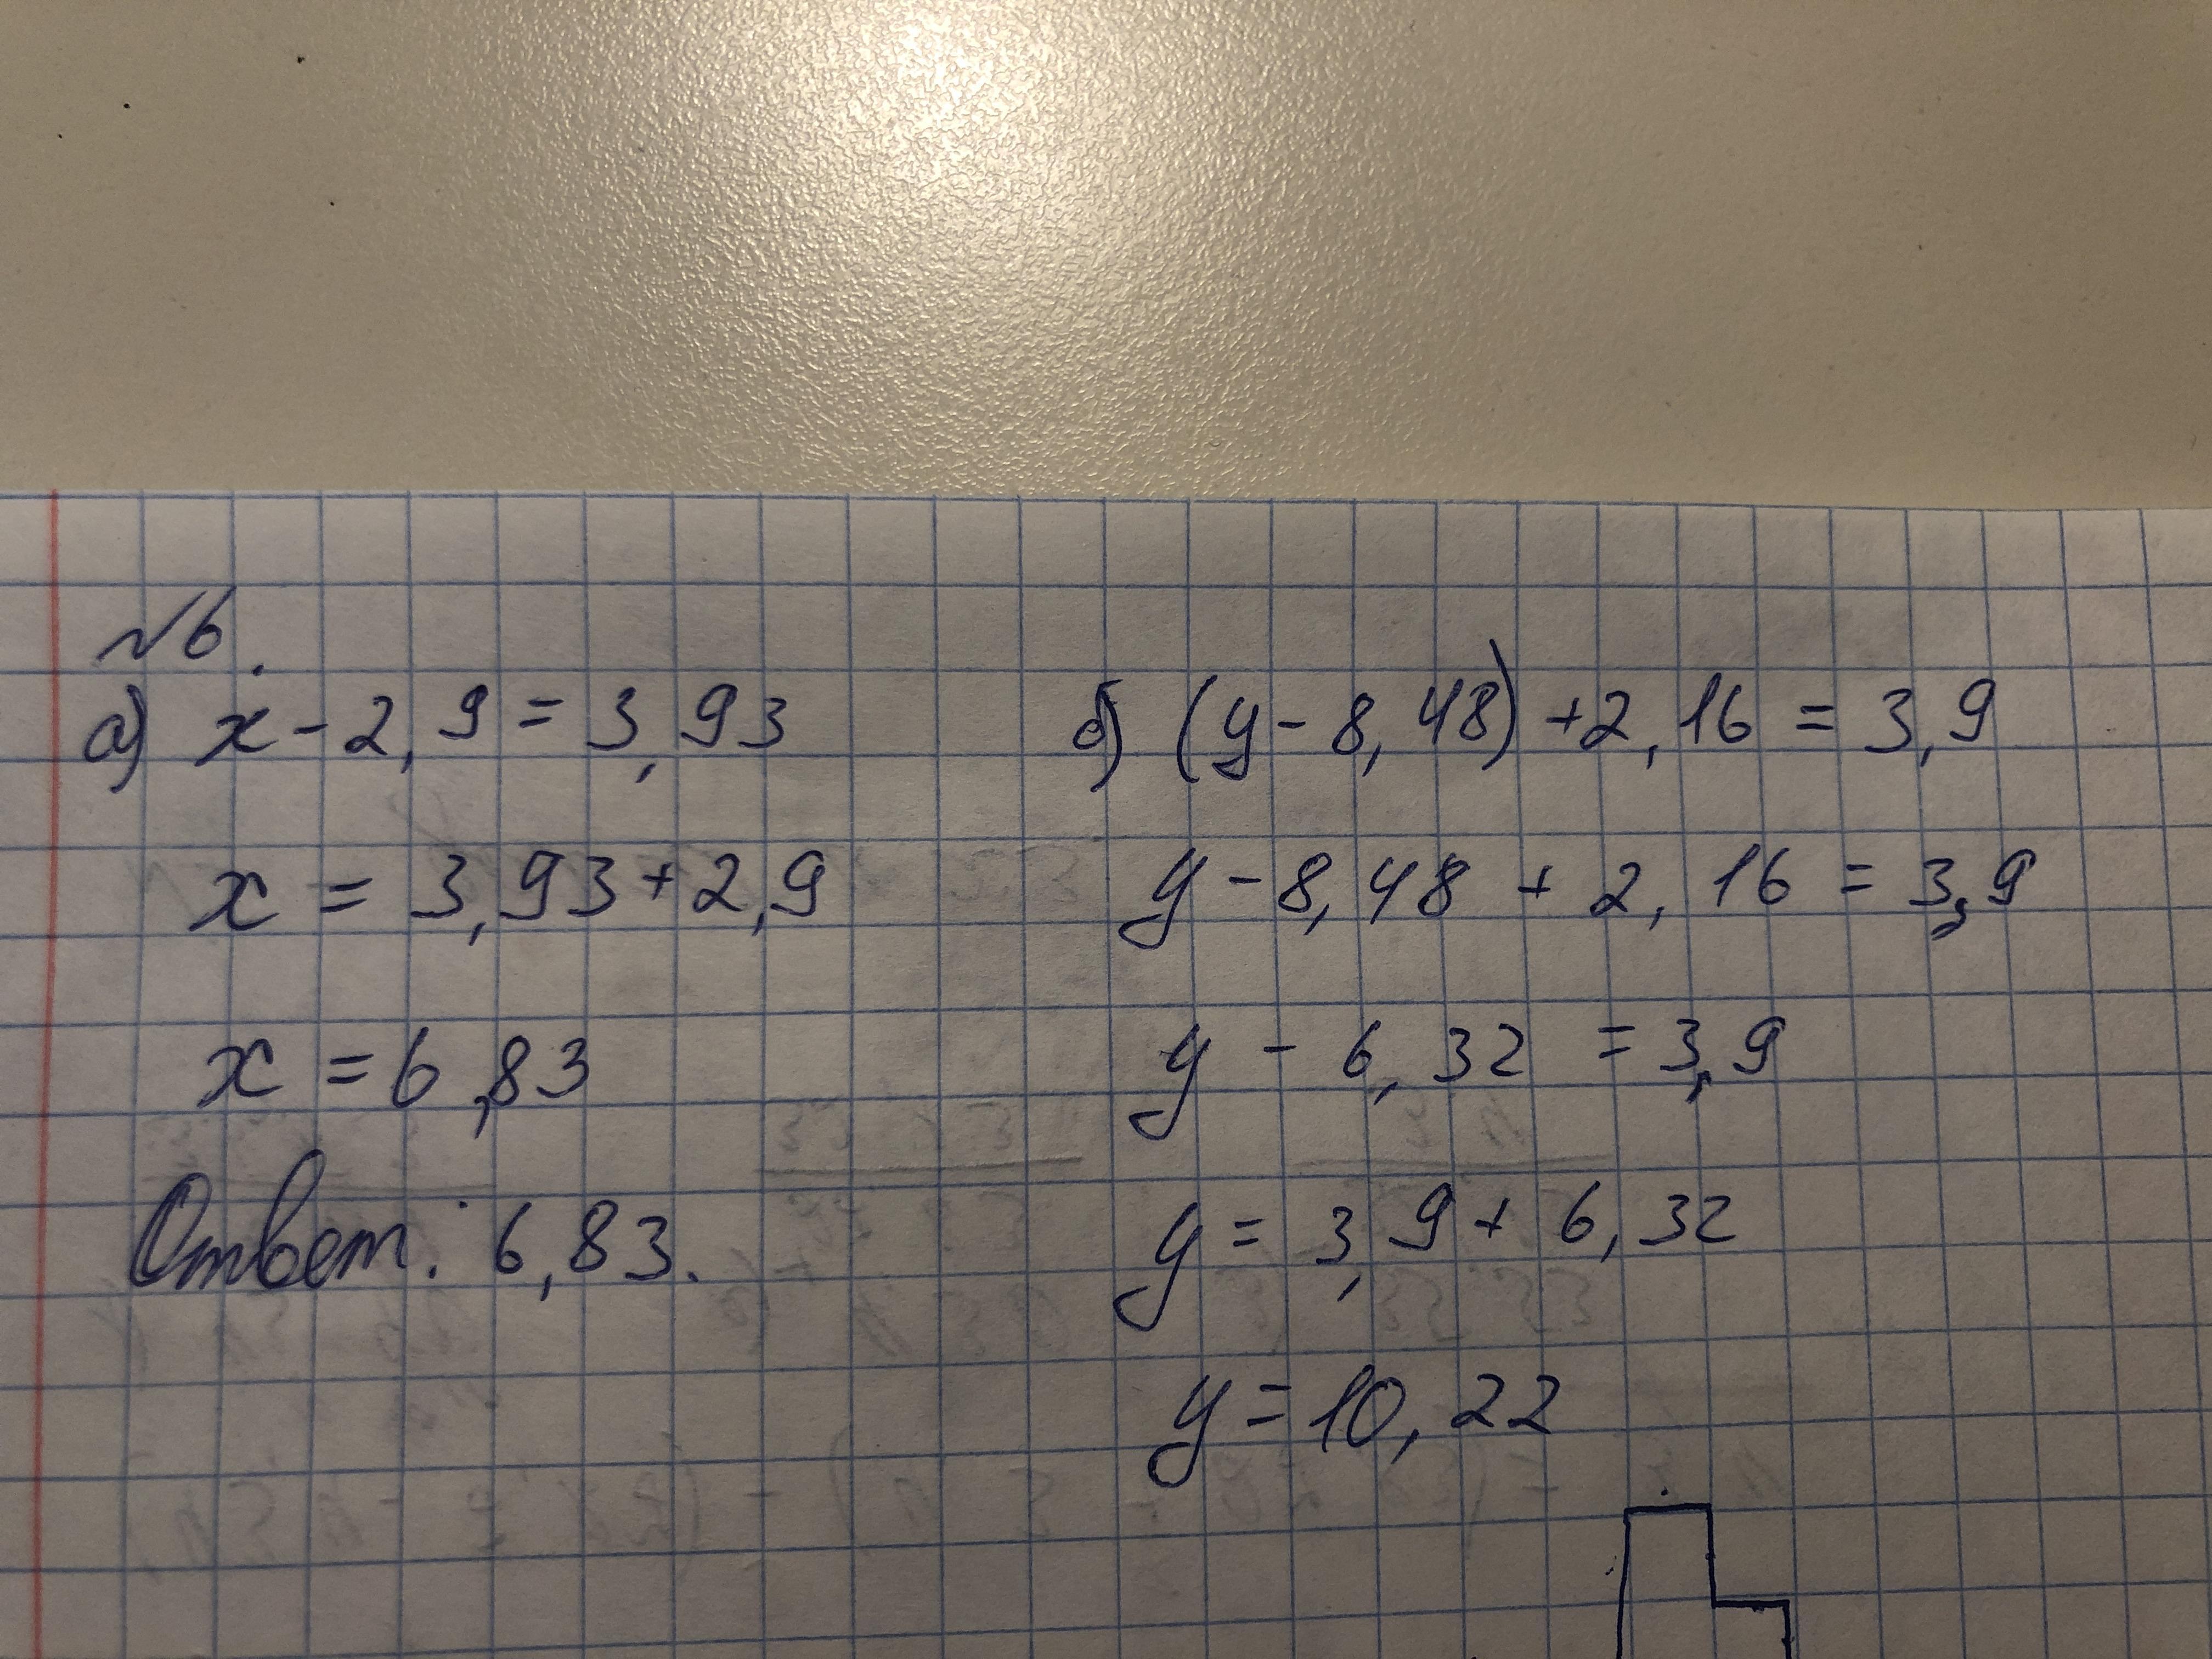 №6.
а) x - 2,9 = 3,93
x = 3,93 + 2,9
x = 6,83
Ответ: 6,83.
б) (y - 8,48) + 2,16 = 3,9
y - 8,48 + 2,16 = 3,9
y - 6,32 = 3,9
y = 3,9 + 6,32
y = 10,22